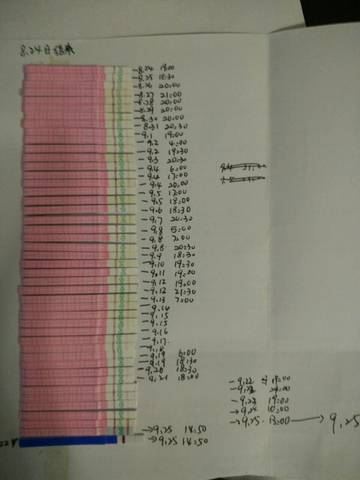 8.24日结束
8.24 18:00
8.25 18:30
8.26 20:00
8.27 21:00
8.28 20:00
8.29 20:00
8.30 20:00
8.31 20:30
9.1 19:00
9.2 6:00
9.2 19:30
9.3 20:30
9.4 6:00
9.4 17:00
9.4 20:00
9.5 12:00
9.5 18:00
9.6 18:30
9.7 20:30
9.8 5:00
9.8 7:00
9.8 20:30
9.9 18:30
9.10 19:30
9.11 19:20
9.12 19:00
9.12 21:30
9.13 7:00
9.14
9.15
9.15
9.16
9.17
9.18
9.19 6:00
9.19 18:30
9.20 18:30
9.21 18:00
9.22 19:00
9.23 19:00
9.25 13:00 → 9.25
→9.25 14:50
→9.25 14:50